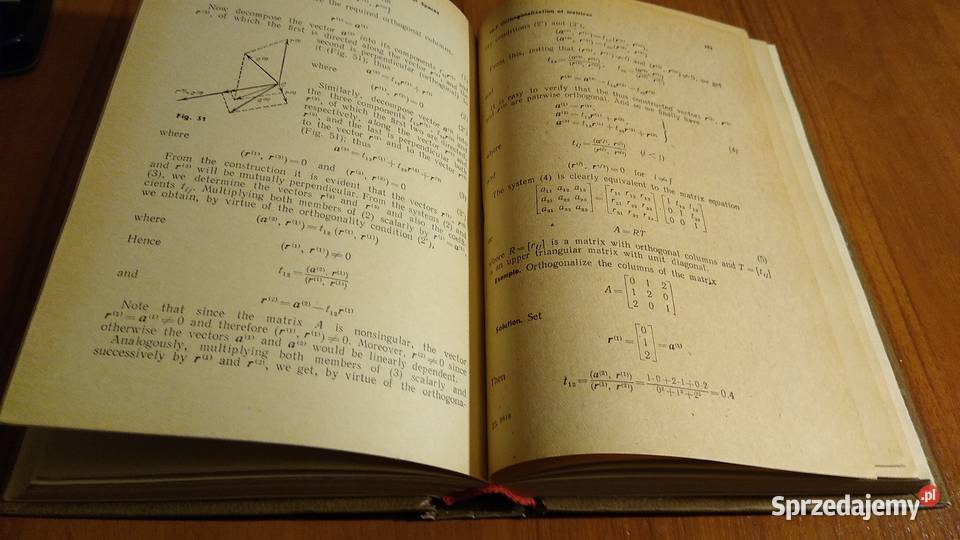 the required orthogonal columns.
r⁽¹⁾ = a⁽¹⁾
Now decompose the vector a⁽²⁾ into its components,
of which the first is directed along the vector r⁽¹⁾ and the
second is perpendicular (orthogonal) to
it (Fig. 51); thus
a⁽²⁾ = t₁₂r⁽¹⁾ + r⁽²⁾
where
(r⁽¹⁾, r⁽²⁾) = 0
Similarly, decompose the vector a⁽³⁾ into
the three components
r⁽³⁾, of which the first two are directed
respectively, along the vectors r⁽¹⁾ and
r⁽²⁾, and the last is perpendicular both
to the vector r⁽¹⁾ and to the vector r⁽²⁾
(Fig. 51); thus
Fig. 51
a⁽³⁾ = t₁₃r⁽¹⁾ + t₂₃r⁽²⁾ + r⁽³⁾
where
(r⁽¹⁾, r⁽³⁾) = 0 and (r⁽²⁾, r⁽³⁾) = 0
From the construction it is evident that the vectors r⁽¹⁾, r⁽²⁾
and r⁽³⁾ will be mutually perpendicular. From the systems (2) and
(3), we determine the vectors r⁽²⁾ and r⁽³⁾ and also the coeffi-
cients tᵢⱼ. Multiplying both members of (2) scalarly by r⁽¹⁾ = a⁽¹⁾,
we obtain, by virtue of the orthogonality condition (2′),
(a⁽²⁾, r⁽¹⁾) = t₁₂ (r⁽¹⁾, r⁽¹⁾)
where
(r⁽¹⁾, r⁽¹⁾) ≠ 0
Hence
t₁₂ = (a⁽²⁾, r⁽¹⁾) / (r⁽¹⁾, r⁽¹⁾)
and
r⁽²⁾ = a⁽²⁾ − t₁₂r⁽¹⁾
Note that since the matrix A is nonsingular, the vector
r⁽¹⁾ = a⁽¹⁾ ≠ 0 and therefore (r⁽¹⁾, r⁽¹⁾) ≠ 0. Moreover, r⁽²⁾ ≠ 0 since
otherwise the vectors a⁽¹⁾ and a⁽²⁾ would be linearly dependent.
Analogously, multiplying both members of (3) scalarly and
successively by r⁽¹⁾ and r⁽²⁾, we get, by virtue of the orthogona-
Orthogonalization of matrices
conditions (2′) and (3′),
From this, noting that (r⁽¹⁾, r⁽¹⁾) ≠ 0 and (r⁽²⁾, r⁽²⁾) ≠ 0, we get
and
r⁽³⁾ = a⁽³⁾ − t₁₃r⁽¹⁾ − t₂₃r⁽²⁾
It is easy to verify that the thus constructed vectors r⁽¹⁾, r⁽²⁾,
are pairwise orthogonal. And so we finally have
a⁽¹⁾ = r⁽¹⁾,
a⁽²⁾ = t₁₂r⁽¹⁾ + r⁽²⁾,
a⁽³⁾ = t₁₃r⁽¹⁾ + t₂₃r⁽²⁾ + r⁽³⁾
(4)
where
tᵢⱼ = (a⁽ʲ⁾, r⁽ⁱ⁾) / (r⁽ⁱ⁾, r⁽ⁱ⁾) (i < j)
and
(r⁽ⁱ⁾, r⁽ʲ⁾) = 0 for i ≠ j
The system (4) is clearly equivalent to the matrix equation
[a₁₁ a₁₂ a₁₃; a₂₁ a₂₂ a₂₃; a₃₁ a₃₂ a₃₃] = [r₁₁ r₁₂ r₁₃; r₂₁ r₂₂ r₂₃; r₃₁ r₃₂ r₃₃] [1 t₁₂ t₁₃; 0 1 t₂₃; 0 0 1]
or
A = RT
(5)
where R = [rᵢⱼ] is a matrix with orthogonal columns and T = [tᵢⱼ]
is an upper triangular matrix with unit diagonal.
Example. Orthogonalize the columns of the matrix
A = [0 1 2; 1 2 0; 2 0 1]
Solution. Set
r⁽¹⁾ = [0; 1; 2] = a⁽¹⁾
Then
t₁₂ = (a⁽²⁾, r⁽¹⁾) / (r⁽¹⁾, r⁽¹⁾) = (1·0+2·1+0·2) / (0²+1²+2²) = 0.4
Sprzedajemy.pl